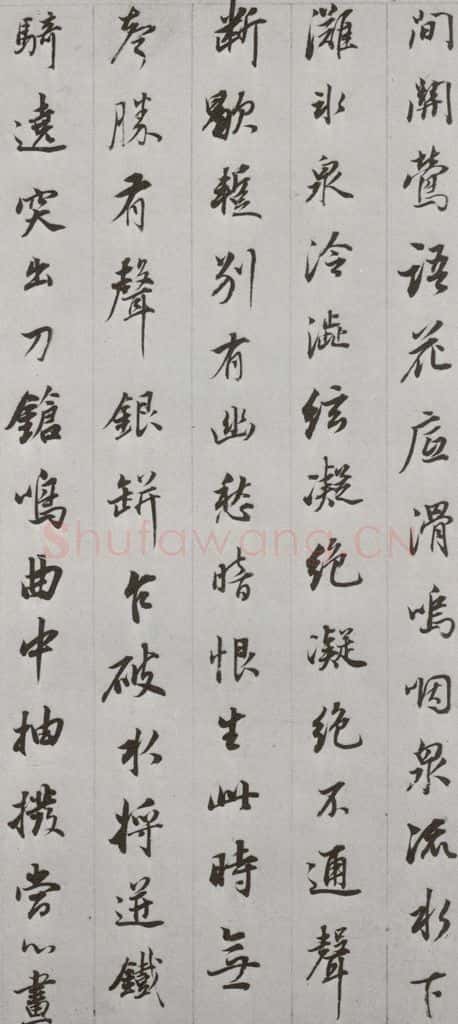 间關鶯語花底滑嗚咽泉流水下
灘氷泉冷澁絃凝絶凝絶不通聲
断歇別有幽愁暗恨生此時無
声勝有聲銀缾乍破水将迸鐵
騎遶突出刀鎗鳴曲中抽撥當心畫
Shufawang.CN